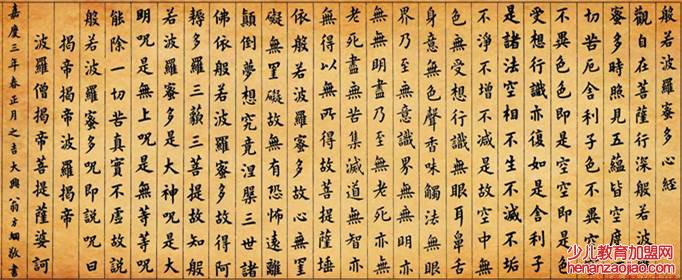 般若波羅蜜多心經
觀自在菩薩行深般若波
蜜多時照見五蘊皆空度
切苦厄舍利子色不異空
不異色色即是空空即是色
受想行識亦復如是舍利子
是諸法空相不生不滅不垢
不淨不增不減是故空中無
色無受想行識無眼耳鼻舌
身意無色聲香味觸法無眼
界乃至無意識界無無明亦
無無明盡乃至無老死亦無
老死盡無苦集滅道無智亦
無得以無所得故菩提薩埵
依般若波羅蜜多故心無罣
礙無罣礙故無有恐怖遠離
顛倒夢想究竟涅槃三世諸
佛依般若波羅蜜多故得阿
耨多羅三藐三菩提故知般
若波羅蜜多是大神咒是大
明咒是無上咒是無等等咒
能除一切苦真實不虛故說
般若波羅蜜多咒即說咒曰
揭帝揭帝波羅揭帝
波羅僧揭帝菩提薩婆訶
嘉慶三年春正月之吉大興翁方綱敬書
少儿教育加盟网
henanzanzhao.com